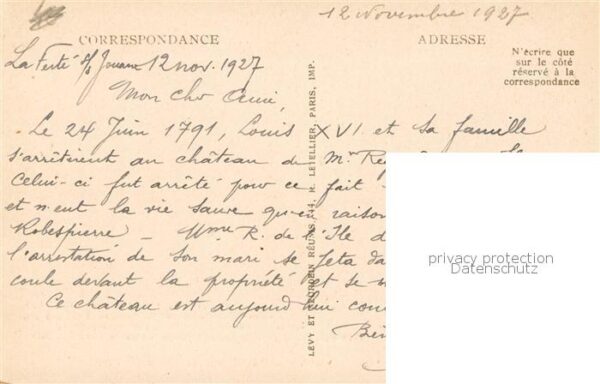 12 Novembre 1927
CORRESPONDANCE
ADRESSE
N'écrire que
sur le côté
réservé à la
correspondance
La Ferté s/s Jouarre 12 nov. 1927
Mon cher Ami,
Le 24 Juin 1791, Louis XVI et sa famille
s'arrêtèrent au château de Mr
Celui-ci fut arrêté pour ce fait
et n'eut la vie sauve qu'en raison
Robespierre — Mme R. de l'Ile d
l'arrestation de son mari se jeta da
coule devant la propriété et se
Ce château est aujourd'hui
LEVY ET NEURDEIN RÉUNIS, 44, R. LETELLIER, PARIS, IMP.
privacy protection
Datenschutz